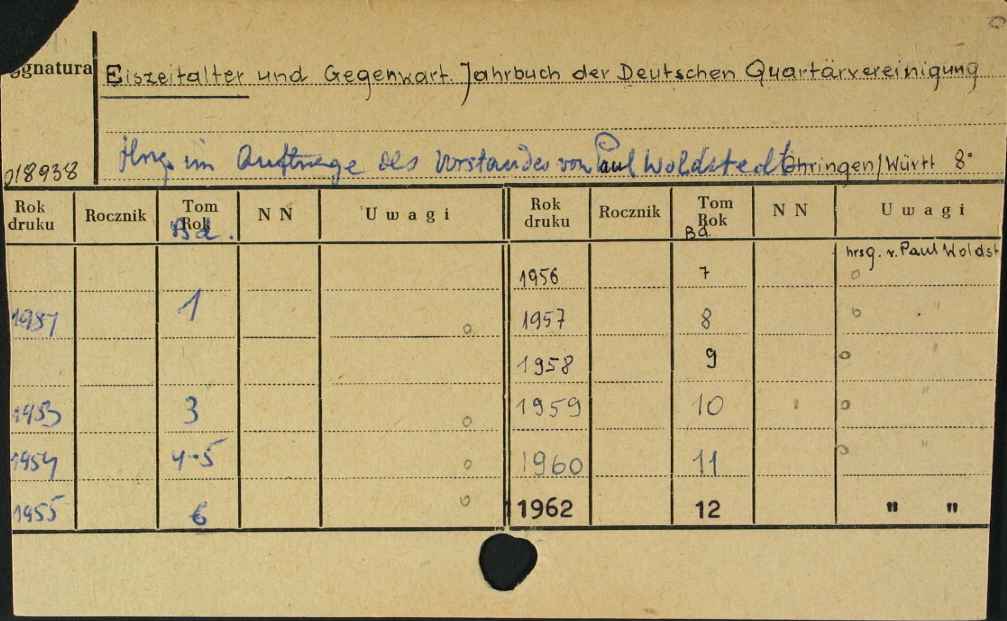 Sygnatura Eiszeitalter und Gegenwart. Jahrbuch der Deutschen Quartärvereinigung
018938 Hrsg. im Auftrage des Vorstandes von Paul Woldstedt Öhringen/Württ 8°
Rok druku Rocznik Tom Rok Bd. NN Uwagi Rok druku Rocznik Tom Rok Bd. NN Uwagi
1956 7 hrsg. v. Paul Woldst
1951 1 1957 8 "
1958 9 "
1953 3 1959 10 "
1954 4-5 1960 11 "
1955 6 1962 12 " "